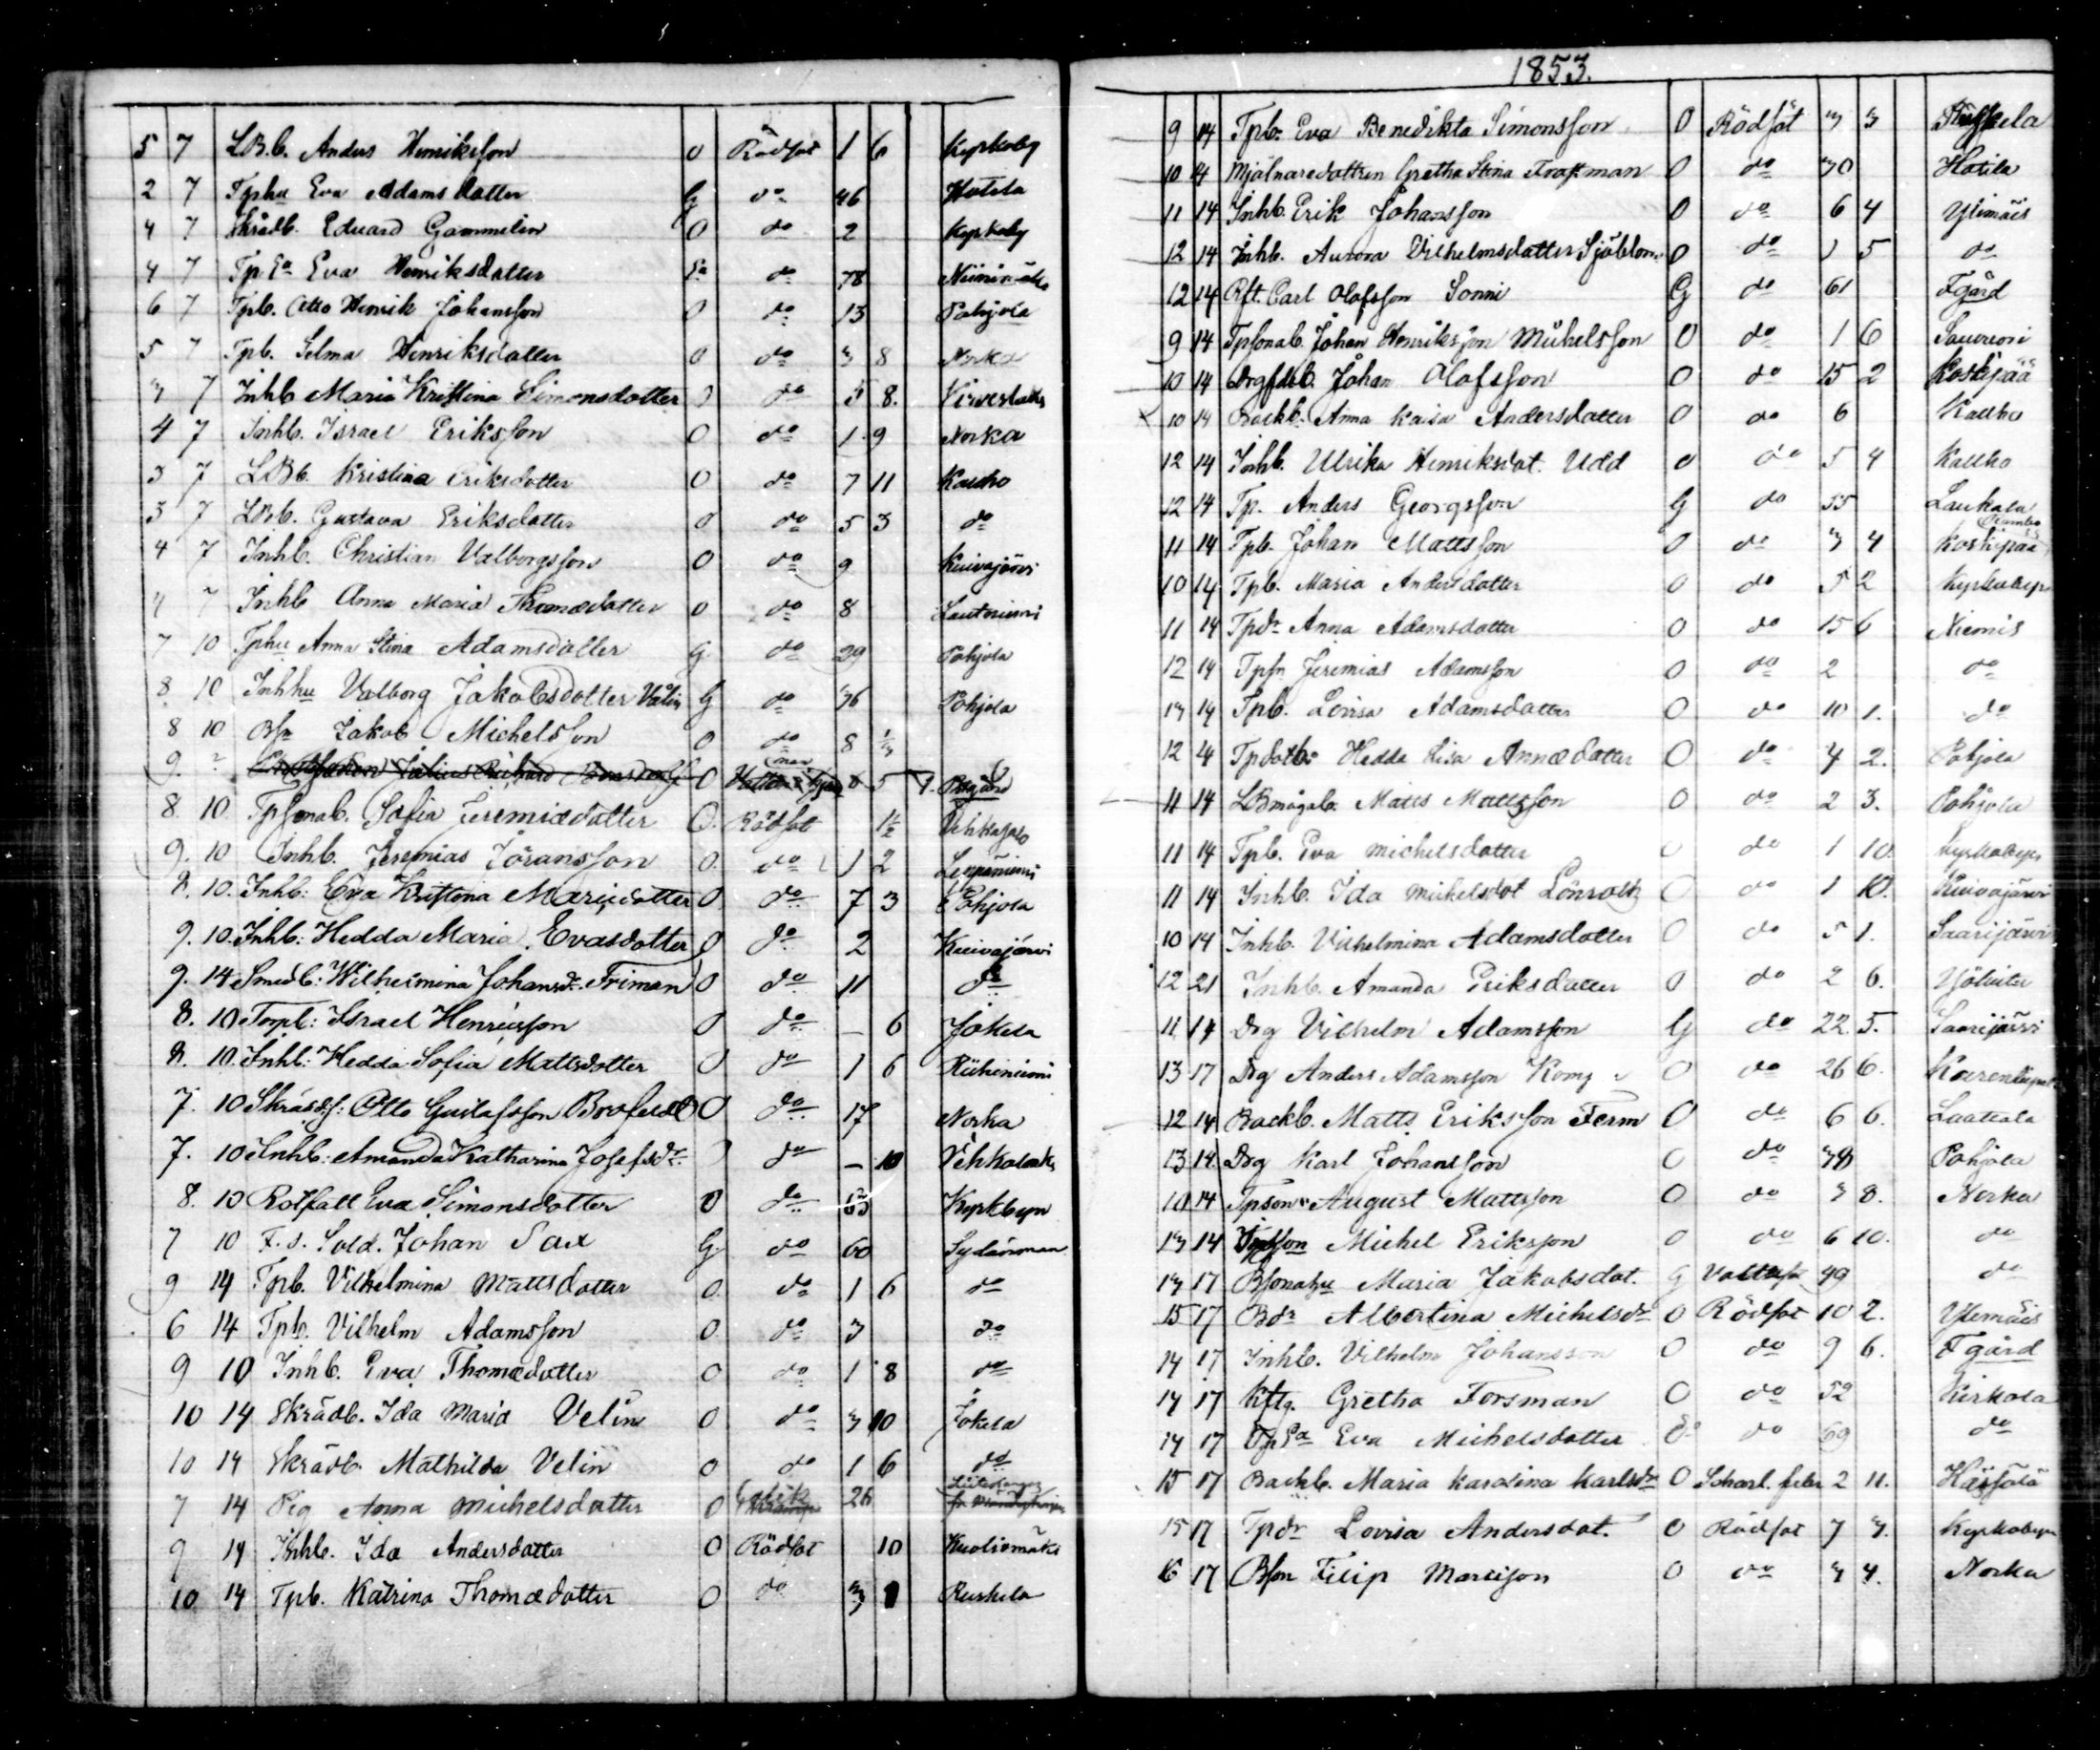 5 7 LBb. Anders Henriksson O Rödsot 1 6 Kyrkoby
2 7 Tphu Eva Adamsdotter G do 46 Hotila
4 7 Skrädb. Eduard Gammelin O do 2 Kyrkoby
4 7 Tp Ea Eva Henriksdotter Ea do 78 Niinimäki
6 7 Tpb. Otto Henrik Johansson O do 13 Pohjola
5 7 Tpb. Selma Henriksdotter O do 3 8 Norka
3 7 Inhb Maria Kristina Simonsdotter O do 5 8.
4 7 Inhb. Israel Eriksson O do 1 9 Norka
3 7 LBb. Kristina Eriksdotter O do 7 11 Kallko
3 7 LBb. Gustava Eriksdotter O do 5 3 do
4 7 Inhb. Christian Valborgsson O do 9 Kuivajärvi
4 7 Inhb Anna Maria Thomædotter O do 8 Lautniemi
7 10 Tphu Anna Stina Adamsdotter G. do 29 Pohjola
8 10 Inhhu Valborg Jakobsdotter Välin G do 36 Pohjola
8 10 Bsn Jakob Michelsson O do 8
9. Julius Richard O 5
8. 10. Tpsonab. Sofia Jeremiædotter O. Rödsot 1½ Vehkasalo
9. 10 Inhb. Jeremias Jöransson O. do 1 2 Leppäniemi
8. 10. Inhb: Eva Kristina Mariædotter O do 7 3 Pohjola
9. 10. Inhb: Hedda Maria Evasdotter O do 2 Kuivajärvi
9. 14 Smedb: Wilhelmina Johansdr. Friman O do 11 do
8. 10 Torpb: Israel Henricsson O do — 6 Jokela
8. 10. Inhb: Hedda Sofia Mattsdotter O do 1 6 Riihiniemi
7. 10 Otto Gustafsson O do 17 Norka
7. 10 Inhb: Amanda Katharina Josefsdr. O do — 10
8. 10 Rotfatt Eva Simonsdotter O do Kyrkbyn
7 10 F. d. Sold. Johan Sax G. do 60 Sydänmaa
9 14 Tpb. Vilhelmina Mattsdotter O. do 1 6 do
6 14 Tpb. Vilhelm Adamsson O. do 3 do
9 10 Inhb. Eva Thomædotter O do 1 8 do
10 14 Skrädb. Ida Maria Velin O do 3 10 Jokela
10 14 Skrädb. Mathilda Velin O do 1 6 do
7 14 Pig Anna Michelsdotter O 26
9 14 Inhb. Ida Andersdotter O Rödsot 10 Kuoliomäki
10 14 Tpb. Katrina Thomædotter O do 3 1 Ruskela
1853.
9 14 Tpb. Eva Benedikta Simonsson O Rödsot 3 3 Ruskela
10 14 Mjölnaredottren Gretha Stina Frostman O do 30 Hotila
11 14 Inhb. Erik Johansson O do 6 4 Ylimäis
12 14 Inhb. Aurora Vilhelmsdotter Sjöblom O do 1 5 do
12 14 Rft. Carl Olofsson Sonni G do 61 Fgård
9 14 Tpsonab. Johan Henriksson Michelsson O do 1 6 Sauvuori
10 14 Johan Olofsson O do 15 2 Koskipää
10 14 Backb. Anna Kaisa Andersdotter O do 6 Kallko
12 14 Inhb. Ulrika Henriksdot. Udd O do 5 4 Kallko
12 14 Tp. Anders Georgsson G do 55 Laukala
11 14 Tpb. Johan Mattsson O do 3 4 Koskipää
10 14 Tpb. Maria Andersdotter O do 5 2 Kyrkobyn
11 14 Tpdr Anna Adamsdotter O do 15 6 Niemis
12 14 Tpsn Jeremias Adamsson O do 2 do
13 14 Tpb. Lovisa Adamsdotter O do 10 1. do
12 14 Tpdotb: Hedda Lisa Annædotter O do 4 2. Pohjola
11 14 LBmågab. Matts Mattsson O do 2 3. Pohjola
11 14 Tpb. Eva Michelsdotter O do 1 10. Kyrkobyn
11 14 Inhb. Ida Michelsdot Lönroth O do 1 10. Kuivajärvi
10 14 Inhb. Vilhelmina Adamsdotter O do 5 1. Saarijärvi
12 21 Inhb. Amanda Eriksdotter O do 2 6.
11 14 Drg Vilhelm Adamsson G do 22 5. Saarijärvi
13 17 Drg Anders Adamsson O do 26 6.
12 14 Backb. Matts Eriksson Ferm O do 6 6. Laukala
13 14. Drg Karl Johansson O do 38 Pohjola
10 14 Tpson August Mattsson O do 3 8. Norka
13 14 Michel Eriksson O do 6 10. do
13 17 Bsonahu Maria Jakobsdot. G Vattusot 49 do
15 17 Bdr Albertina Michelsdr O Rödsot 10 2. Ylimäis
14 17 Inhb. Vilhelm Johansson O do 9 6. Fgård
14 17 Kftg. Gretha Forsman O do 52 Kirkola
14 17 Tp Ea Eva Michelsdotter Ea do 69 do
15 17 Backb. Maria Karolina Karlsdr O Scharl. feber 2 11. Häijälä
15 17 Tpdr Lovisa Andersdot. O Rödsot 7 3. Kyrkobyn
16 17 Bson Filip Mattsson O do 3 4. Norka